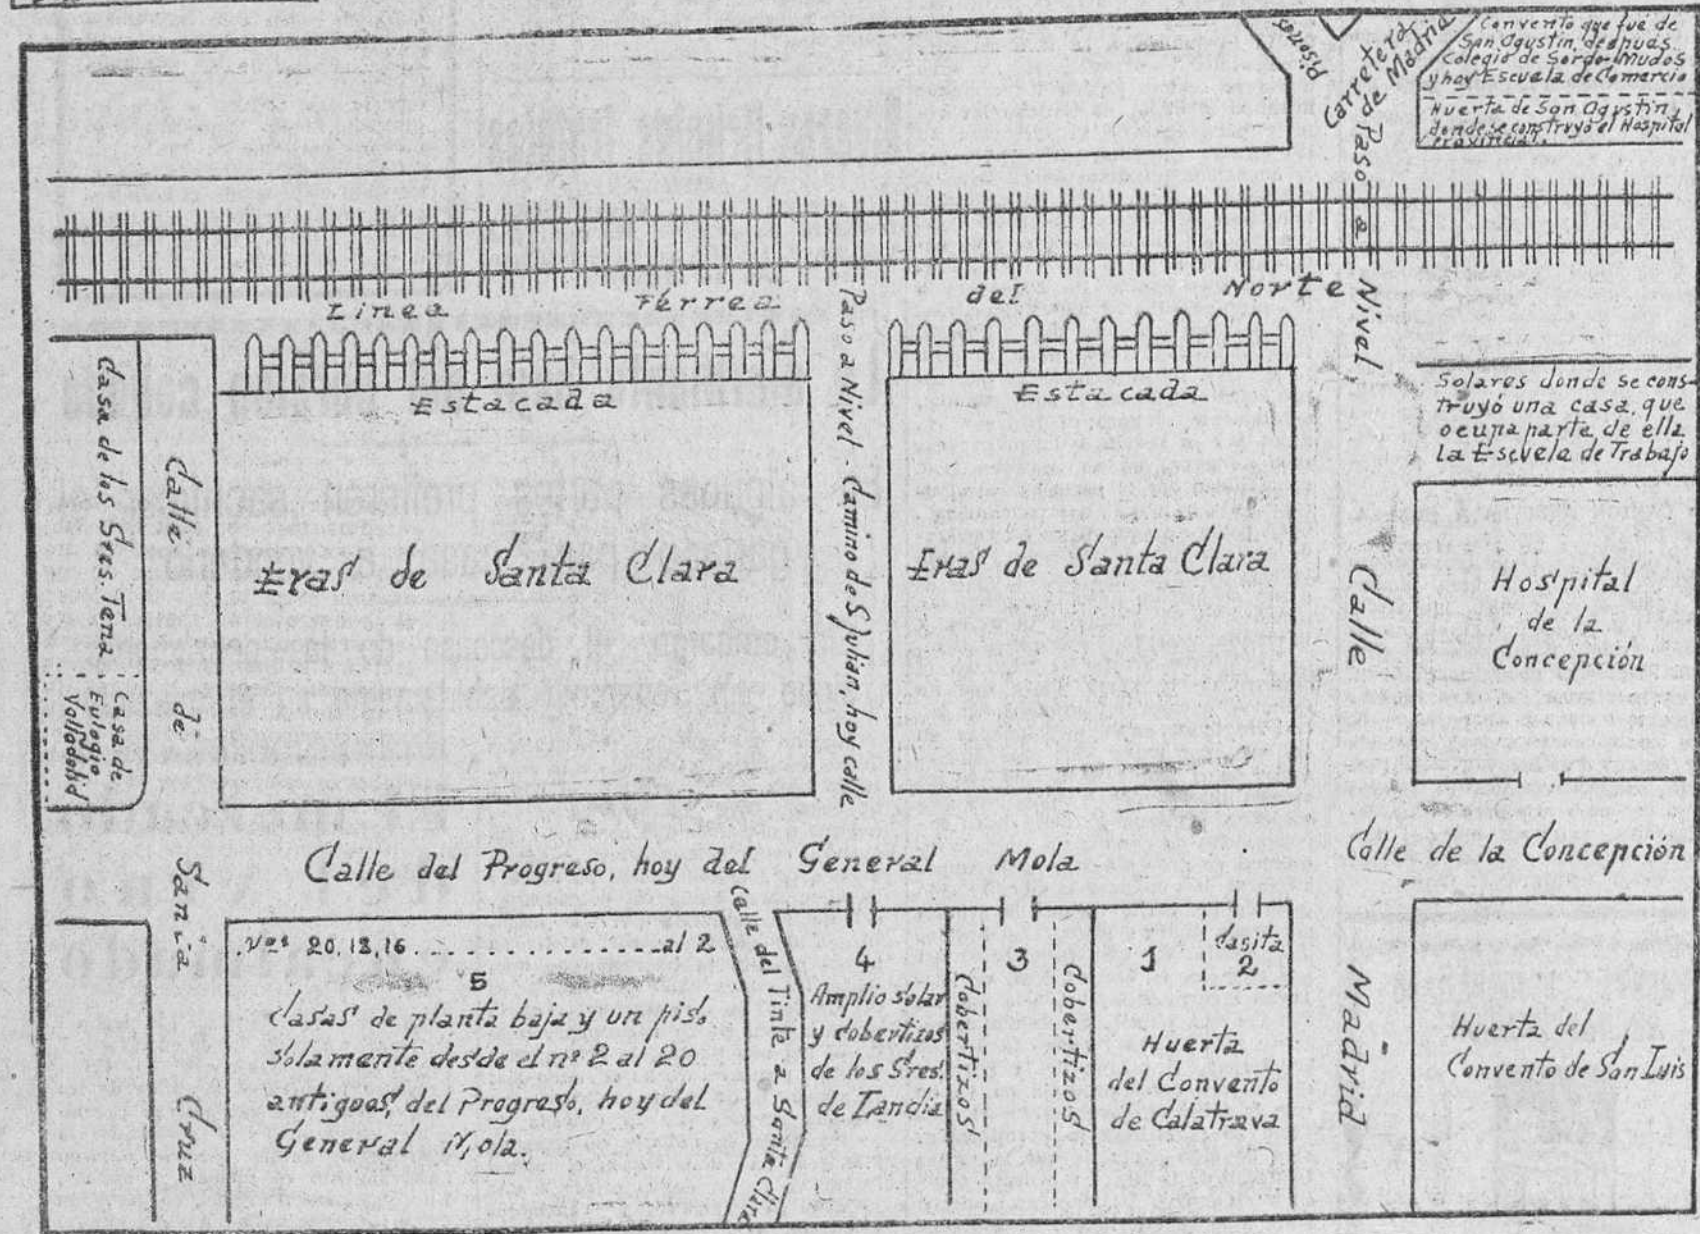 Pisones
Carretera
de Madrid
Convento que fué de
San Agustin, después
Colegio de Sordo-Mudos
y hoy Escuela de Comercio
Huerta de San Agustin,
donde se construyó el Hospital
Provincial.
Paso a Nivel
Linea Férrea del Norte
Estacada
Estacada
Solares donde se cons-
truyó una casa, que
ocupa parte de ella
la Escuela de Trabajo
Casa de los Sres. Tena
Casa de
Eulogio
Valladolid
Calle de Santa Cruz
Eras de Santa Clara
Paso a Nivel - Camino de S. Julian, hoy calle
Eras de Santa Clara
Calle Madrid
Hospital
de la
Concepción
Calle del Progreso, hoy del General Mola
Calle de la Concepción
Nos 20, 18, 16 ... al 2
5
Casas de planta baja y un piso
solamente desde el nº 2 al 20
antiguos, del Progreso, hoy del
General Mola.
Calle del Tinte a Santa Clara
4
Amplio solar
y cobertizos
de los Sres.
de Landia
Cobertizos
3
Cobertizos
1
Casita
2
Huerta
del Convento
de Calatrava
Huerta del
Convento de San Luis